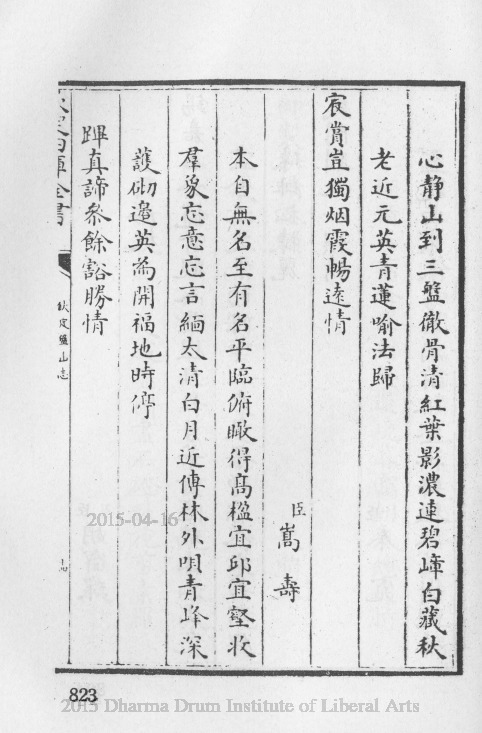 心静山到三盤徹骨清紅葉影濃連碧嶂白蔵秋
老近元英青蓮喻法歸
宸賞豈獨烟霞暢遠情
臣嵩壽
本自無名至有名平臨俯瞰得髙楹宜邱宜壑收
羣象忘意忘言緬太清白月近傳林外唄青峰深
護砌邉英為開福地時停
蹕真諦叅餘豁勝情
欽定四庫全書
欽定盤山志
2015-04-16
823
2015 Dharma Drum Institute of Liberal Arts